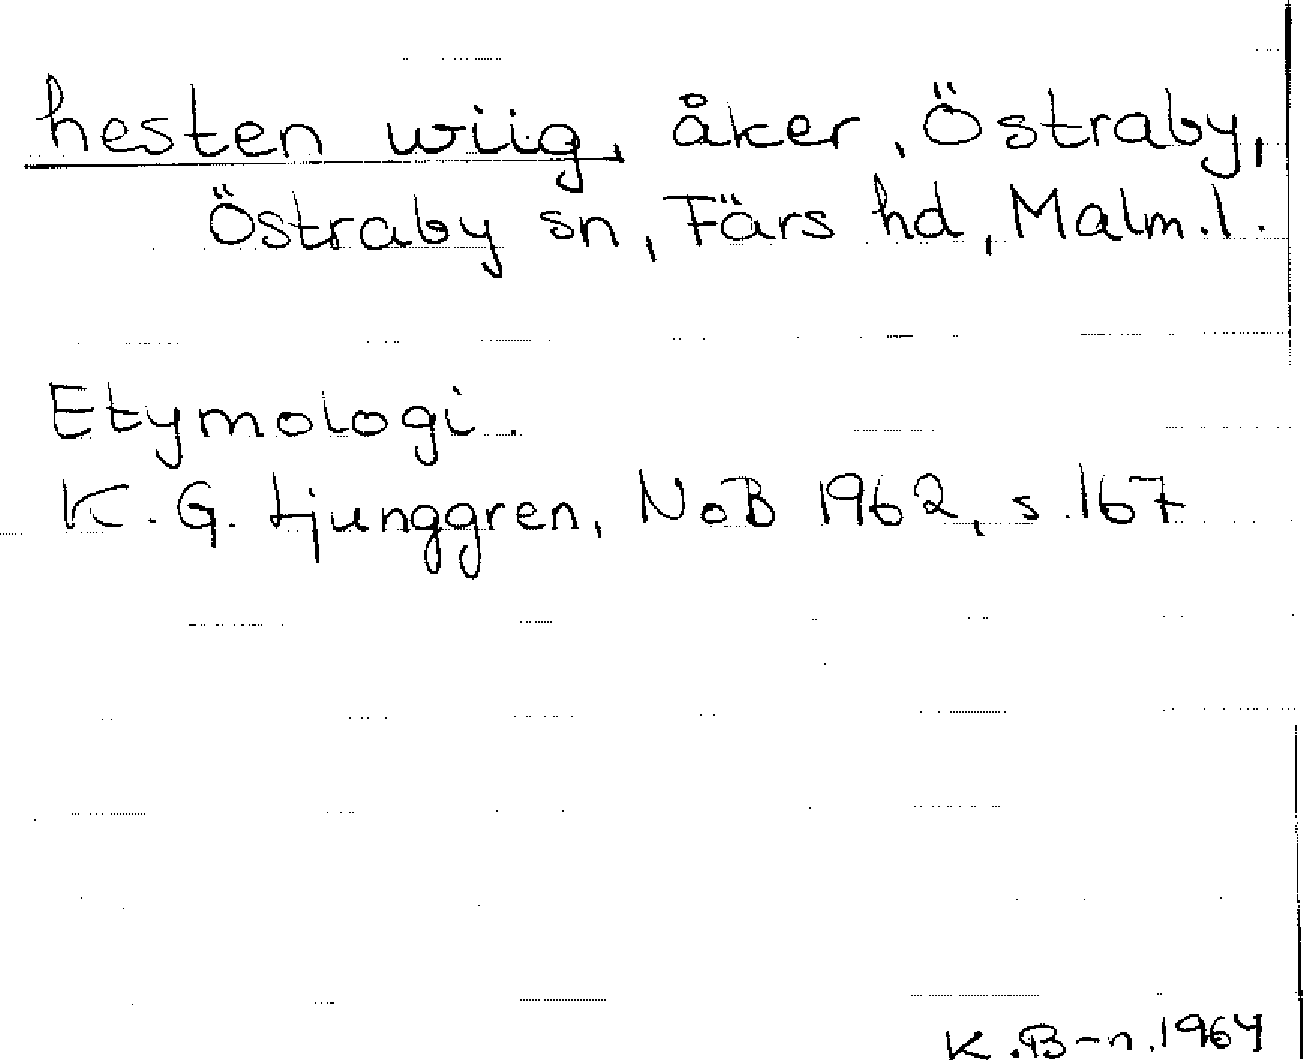 hesten wiig, åker, Östraby,
Östraby sn, Färs hd, Malm.l.
Etymologi.
K. G. Ljunggren, NoB 1962, s.167
K.B-n.1964